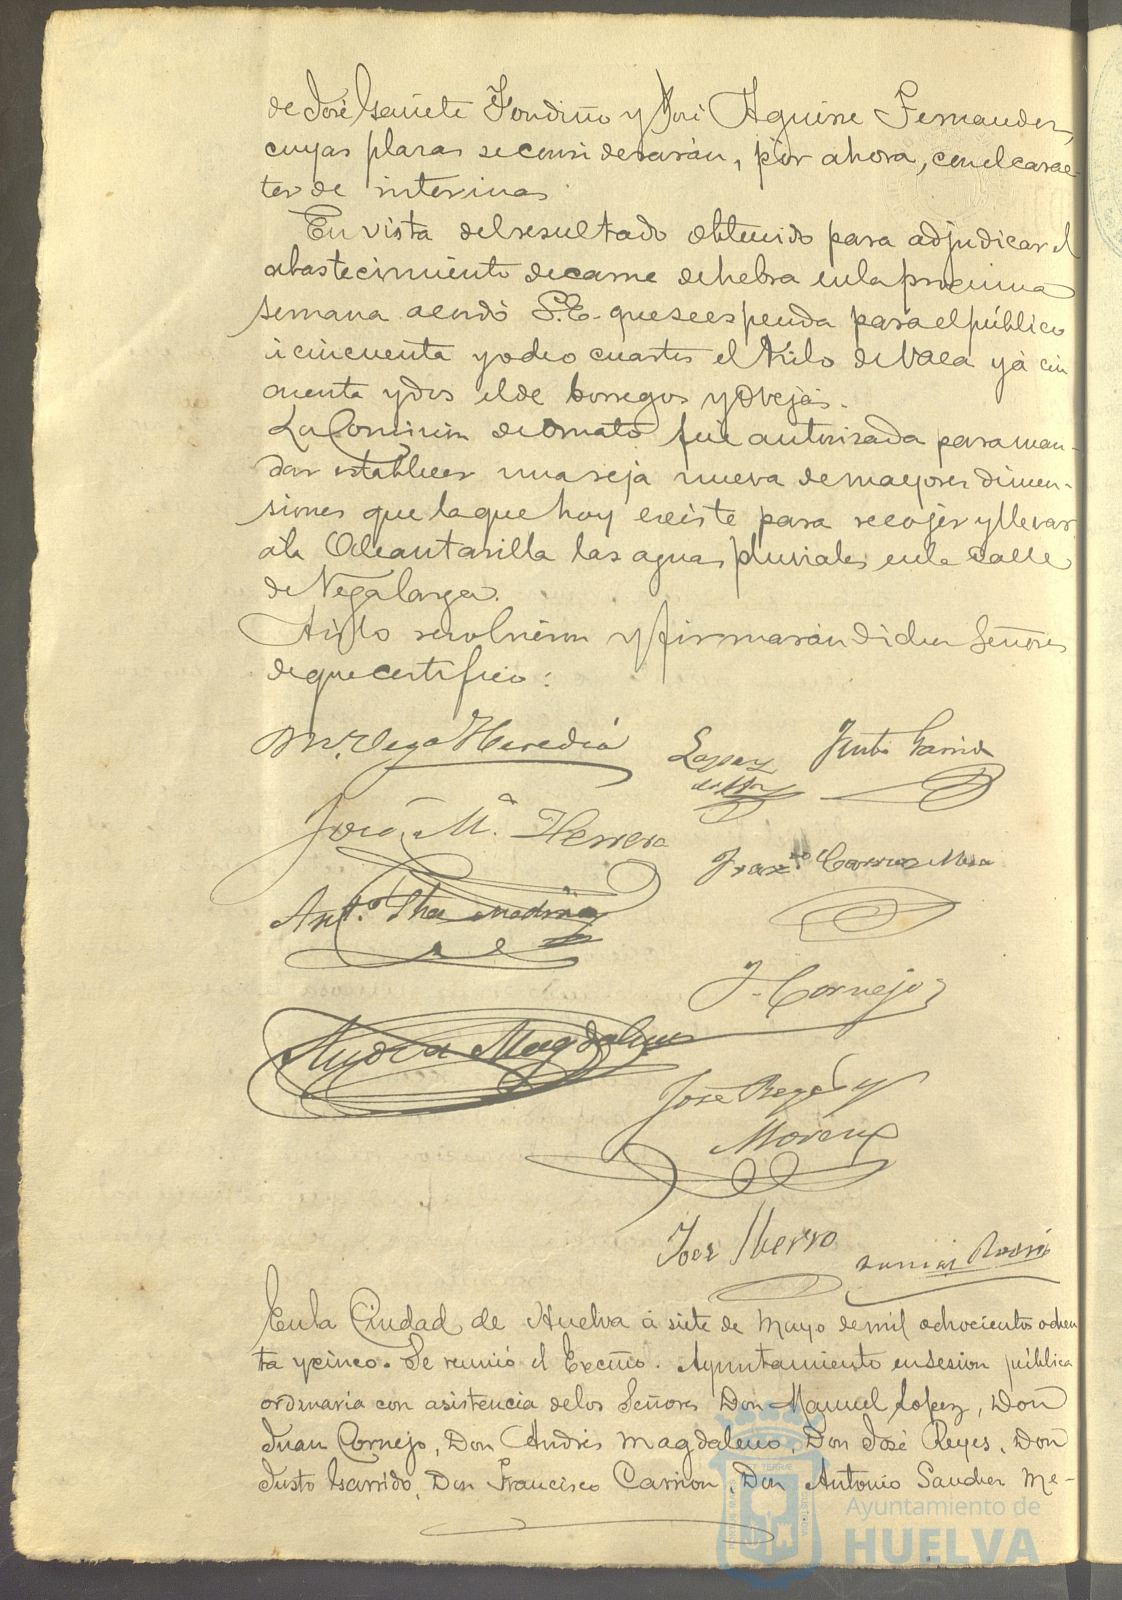 de José Gañete Fondiño y José Aguirre Fernandez,
cuyas plazas se considerarán, por ahora, con el carac-
ter de interinas.
En vista del resultado obtenido para adjudicar el
abastecimiento de carne de hebra en la procsima
semana acordó S.E. que se espenda para el público
á cincuenta y ocho cuartos el Kilo de Vaca y á cin
cuenta y dos el de borregos y Ovejas.
La Comision de Ornato fué autorizada para man-
dar establecer una reja nueva de mayores dimen-
siones que la que hoy ecsiste para recojer y llevar
á la Alcantarilla las aguas pluviales en la calle
de Vegalarga.
Así lo resolvieron y firmarán dichos Señores
de que certifico:
M. Vega Heredia
Lopez
Justo Garrido
José Mª Herrera
Franco. Carrion Mesa
Anto.
J. Cornejo
Andres Magdaleno
José Reyes y
Moreno
José
En la Ciudad de Huelva á siete de Mayo de mil ochocientos ochen
ta y cinco. Se reunió el Excmo. Ayuntamiento en sesion pública
ordinaria con asistencia de los Señores Don Manuel Lopez, Don
Juan Cornejo, Don Andrés Magdaleno, Don José Reyes, Don
Justo Garrido, Don Francisco Carrion, Don Antonio Sanchez Me-
Ayuntamiento de
HUELVA